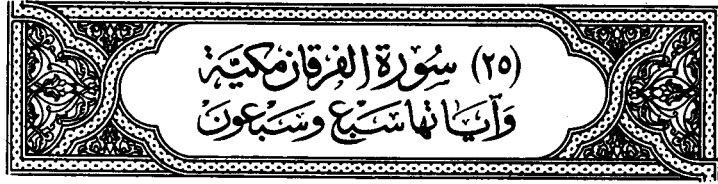 (٢٥) سُورَة الفرقان مكيَّة
وَآيَاتها سَبع وسَبعونَ